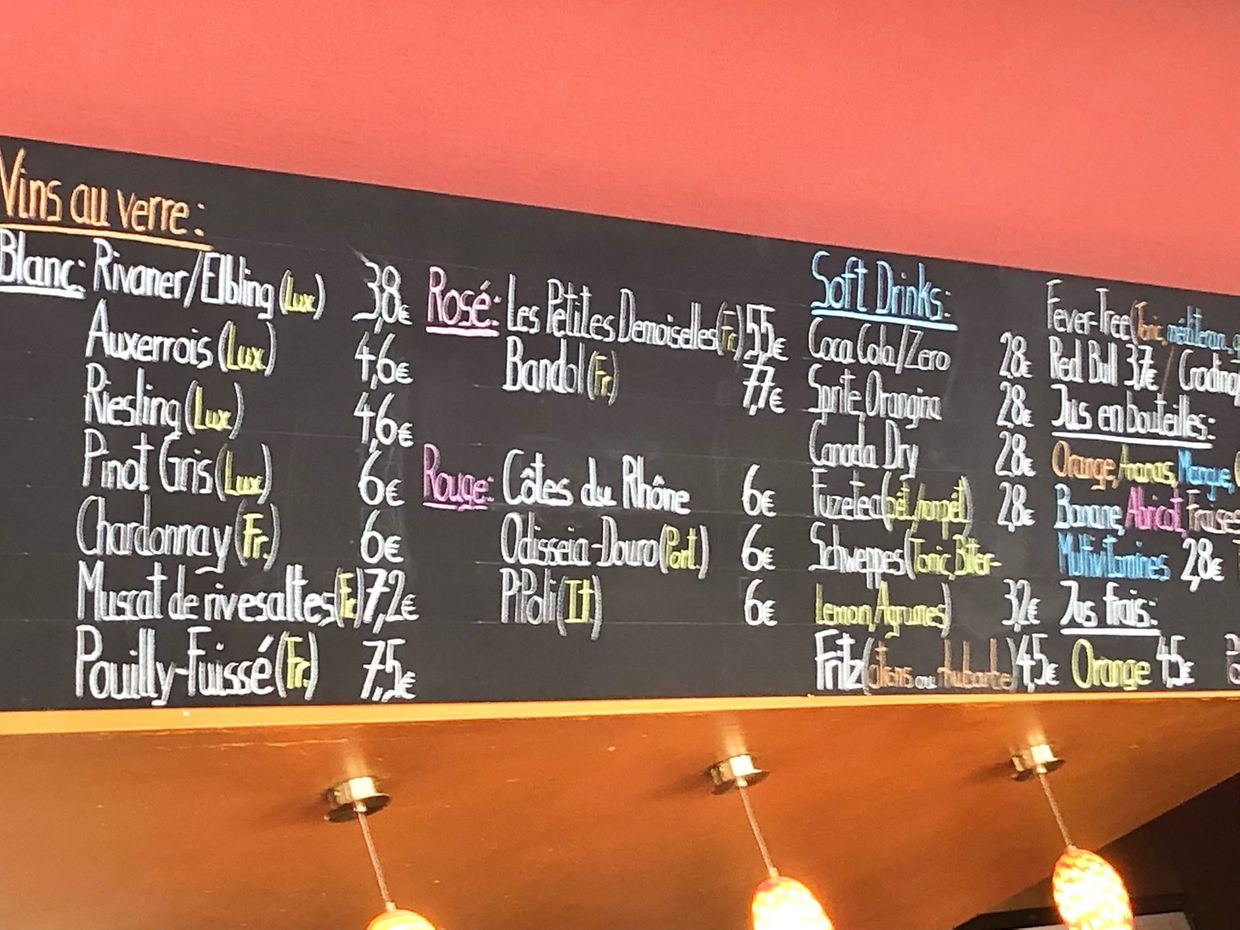 Vins au verre:
Blanc: Rivaner/Elbling (Lux) 3,8€
Auxerrois (Lux) 4,6€
Riesling (Lux) 4,6€
Pinot Gris (Lux) 6€
Chardonnay (Fr.) 6€
Muscat de rivesaltes (Fr) 7,2€
Pouilly-Fuissé (Fr.) 7,5€
Rosé: Les Petites Demoiselles (Fr) 5,5€
Bandol (Fr) 7,7€
Rouge: Côtes du Rhône 6€
Odisseia-Douro (Port.) 6€
P.Poli (It) 6€
Soft Drinks:
Coca Cola/Zero 2,8€
Sprite, Orangina 2,8€
Canada Dry 2,8€
Fuzetea (pét/nonpét) 2,8€
Schweppes (Tonic, Bitter-
Lemon, Agrumes) 3,2€
Fritz (citrons ou rhubarbe) 4,5€
Fever-Tree (Tonic, mediterran,
Red Bull 3,7€ /
Jus en bouteilles:
Orange, Ananas, Mangue,
Banane, Abricot, Fraise
Multivitamines 2,8€
Jus frais:
Orange 4,5€